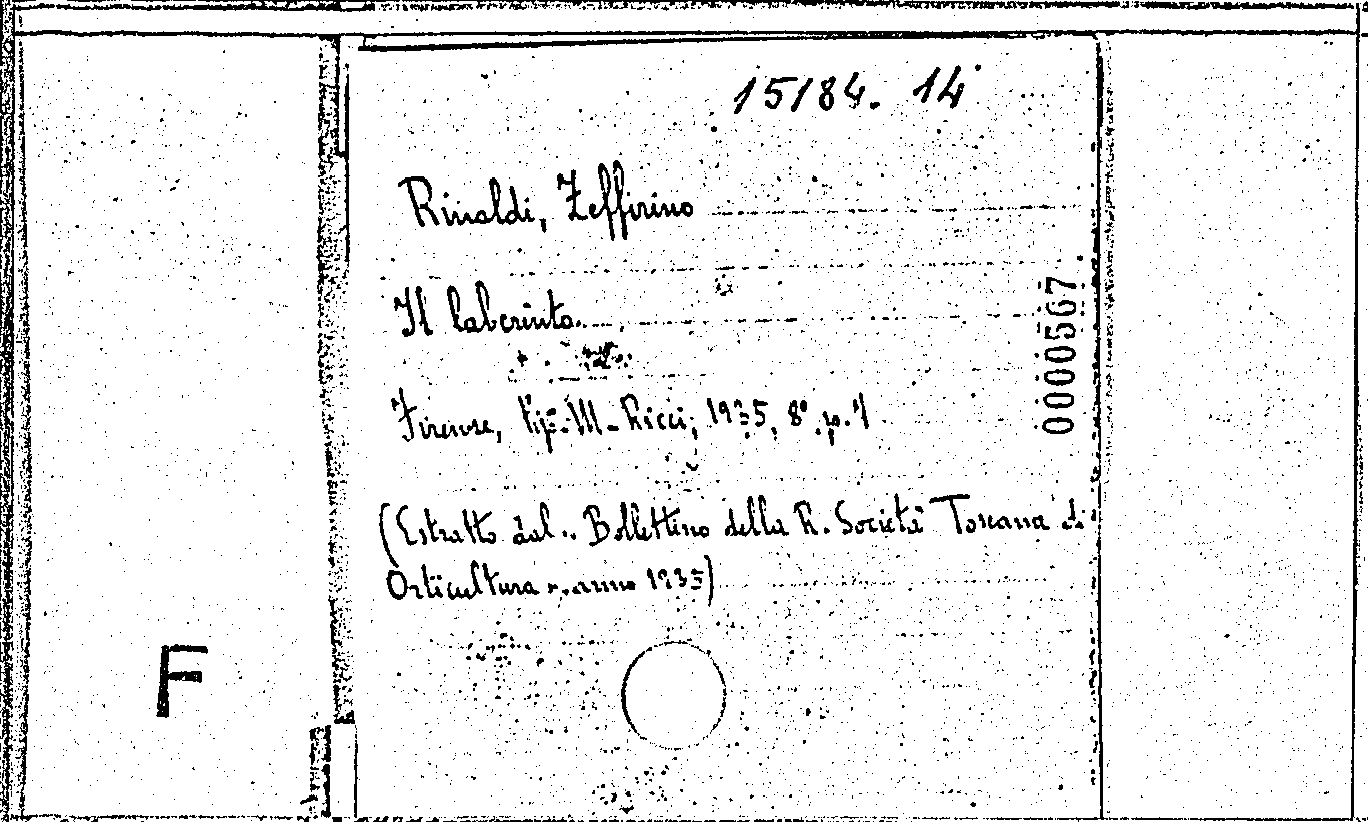 15184. 14
Rinaldi, Zeffirino
Il laberinto.
0000567
Firenze, Tip. M. Ricci, 1935, 8°, p.
(Estratto dal.. Bollettino della R. Società Toscana di
Orticultura ". anno 1935)
F